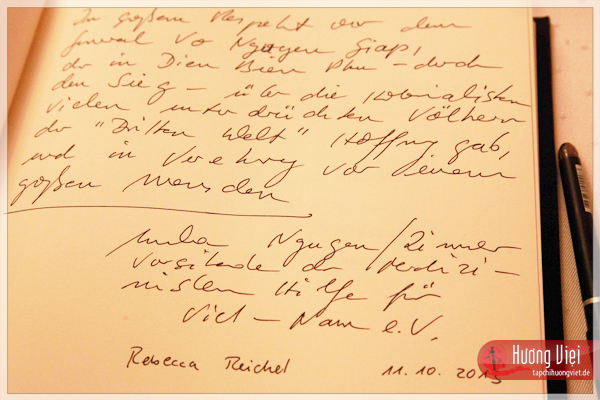 In großem Respekt vor dem
General Vo Nguyen Giap,
der in Dien Bien Phu – durch
den Sieg – über die Kolonialisten
vielen unterdrückten Völkern
der "Dritten Welt" Hoffnung gab,
und in Verehrung vor einem
großen Menschen
Nguyen/Zimmer
Vorsitzende der Medizi-
nischen Hilfe für
Viet-Nam e.V.
Rebecca Reichel 11.10.2013
Hương Việt
tapchihuongviet.de